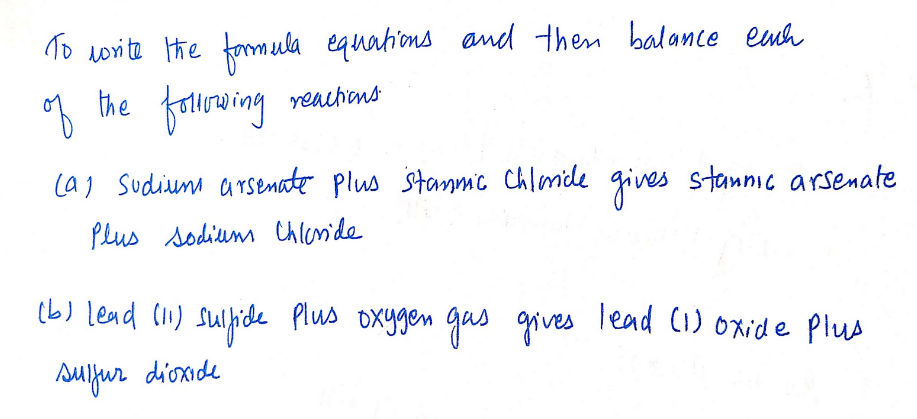 To write the formula equations and then balance each
of the following reactions
(a) Sodium arsenate plus stannic chloride gives stannic arsenate
plus sodium chloride
(b) lead (II) sulfide plus oxygen gas gives lead (I) oxide plus
sulfur dioxide